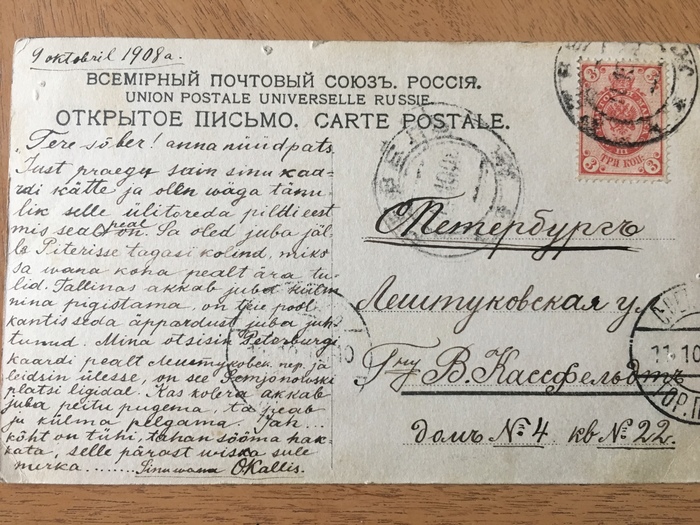 9 oktobril 1908 a.
ВСЕМІРНЫЙ ПОЧТОВЫЙ СОЮЗЪ. РОССІЯ.
UNION POSTALE UNIVERSELLE RUSSIE.
ОТКРЫТОЕ ПИСЬМО. CARTE POSTALE.
Tere sõber! anna nüüd pats.
Just praegu sain sinu kaa-
rdi kätte ja olen wäga tänu
lik selle ülitoreda pildi eest
mis seal peal on. Sa oled juba jäl-
le Piterisse tagasi kolind, miks
sa wana koha pealt ära tu-
lid. Tallinas akkab juba külm
nina pigistama, on teie pool
kantis seda äppardust juba juh-
tunud. Mina otsisin Peterburgi
kaardi pealt Лештуковск. пер. ja
leidsin ülesse, on see Semjonowski
platsi ligidal. Kas kolera akkab
juba peitu pugema, ta peab
ju külma pelgama. Jah...
kõht on tühi, tahan sööma hak-
kata, selle pärast wiska sule
nurka ........ Sinu wana OKallis.
3 3
3 ТРИ КОП. 3
С Петербургъ
Лештуковская ул
Гну В. Кассфельдтъ
домъ № 4. кв № 22.
11.10